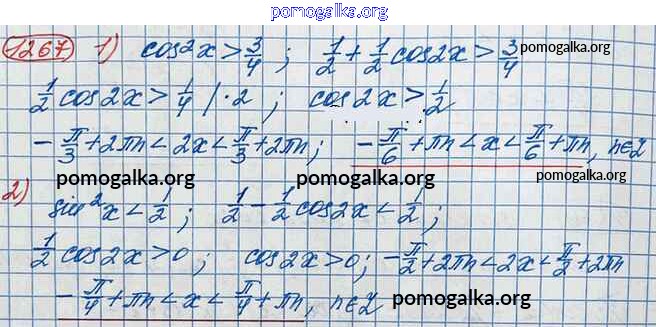 pomogalka.org
1267 1) cos²x > 3/4 ; 1/2 + 1/2 cos2x > 3/4
pomogalka.org
1/2 cos2x > 1/4 | · 2 ; cos2x > 1/2
- π/3 + 2πn < 2x < π/3 + 2πn ; - π/6 + πn < x < π/6 + πn, n∈Z
pomogalka.org pomogalka.org pomogalka.org
2) sin²x < 1/2 ; 1/2 - 1/2 cos2x < 1/2 ;
1/2 cos2x > 0 ; cos2x > 0 ; - π/2 + 2πn < 2x < π/2 + 2πn
- π/4 + πn < x < π/4 + πn, n∈Z
pomogalka.org